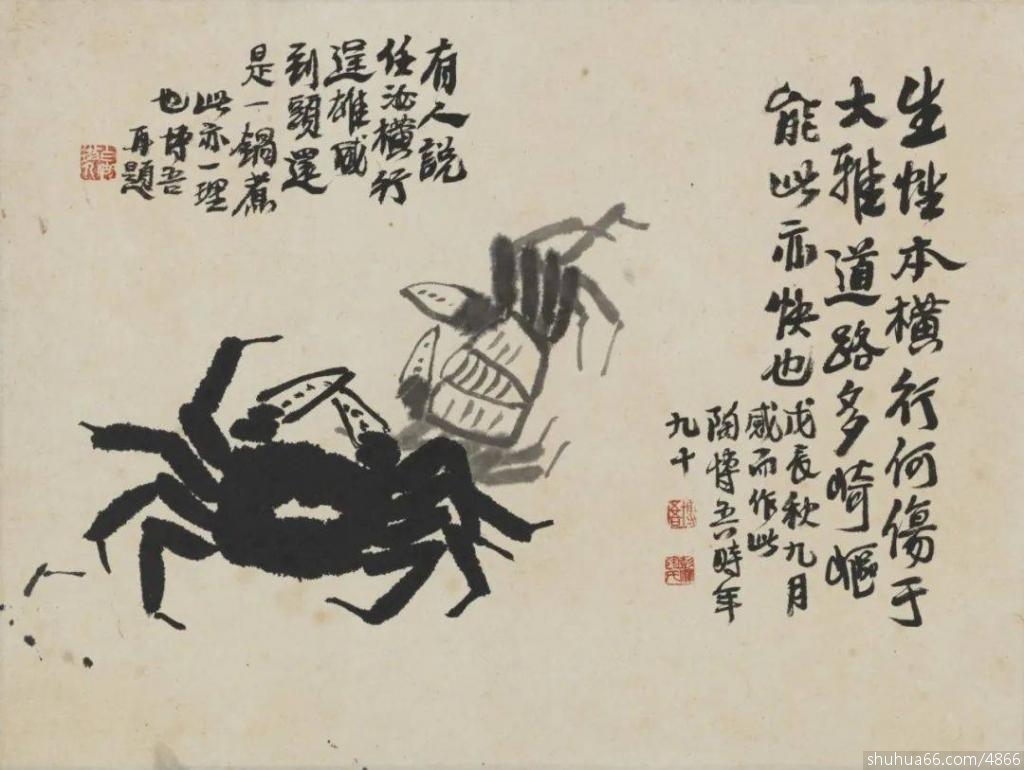 生性本橫行何傷于
大雅道路多崎嶇
能此亦快也
戊辰秋九月
感而作此
陶博吾時年
九十
有人說
任汝橫行
逞雄威
到頭還
是一鍋煮
此亦一理
也博吾
再題
shuhua66.com/4866